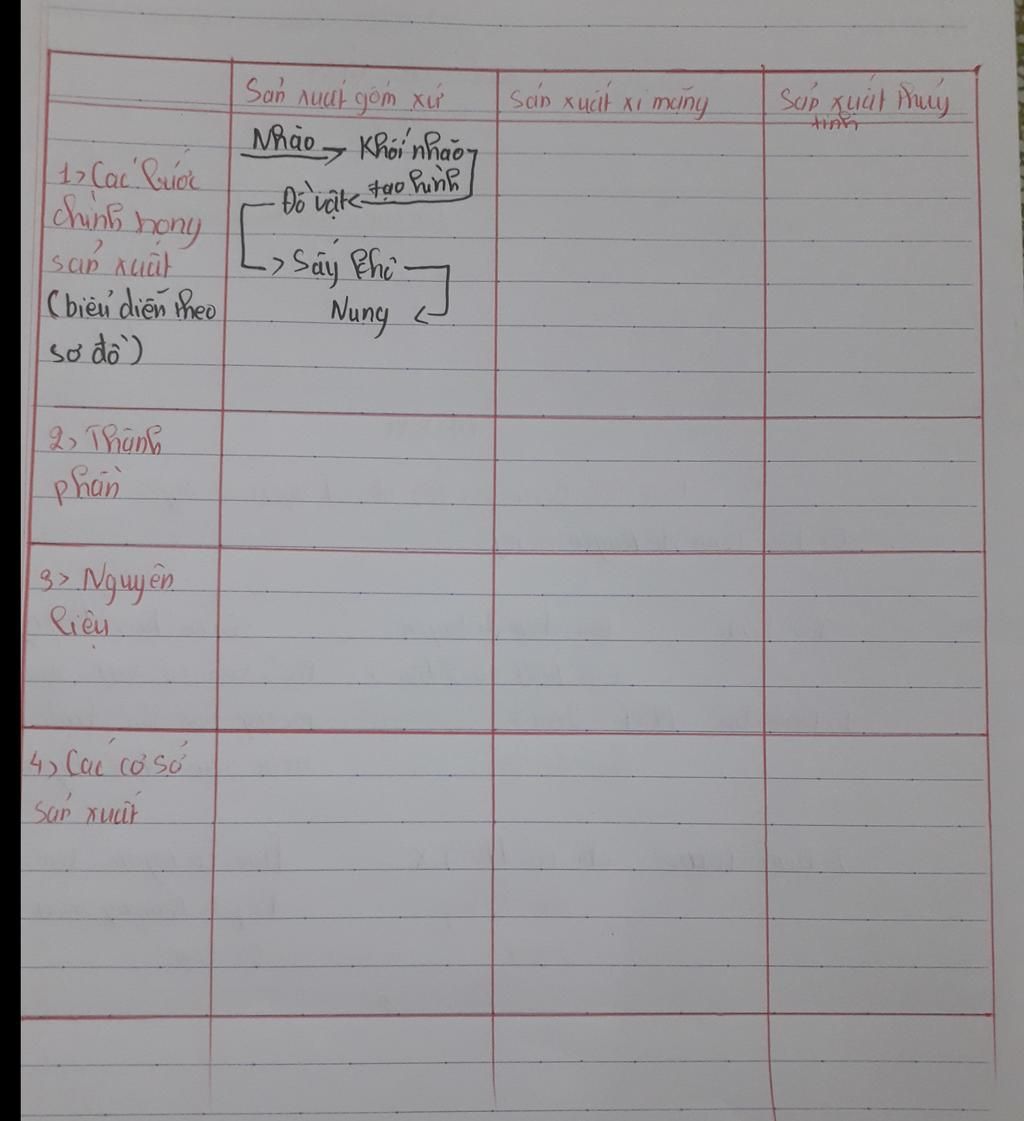 Sản xuất gốm xứ
Sản xuất xi măng
Sản xuất thuỷ
tinh
1, Các bước
chính trong
sản xuất
(biểu diễn theo
sơ đồ)
Nhào → Khối nhão
Đồ vật ← tạo hình
→ Sấy khô
Nung ←
2, Thành
phần
3, Nguyên
liệu
4, Các cơ sở
sản xuất